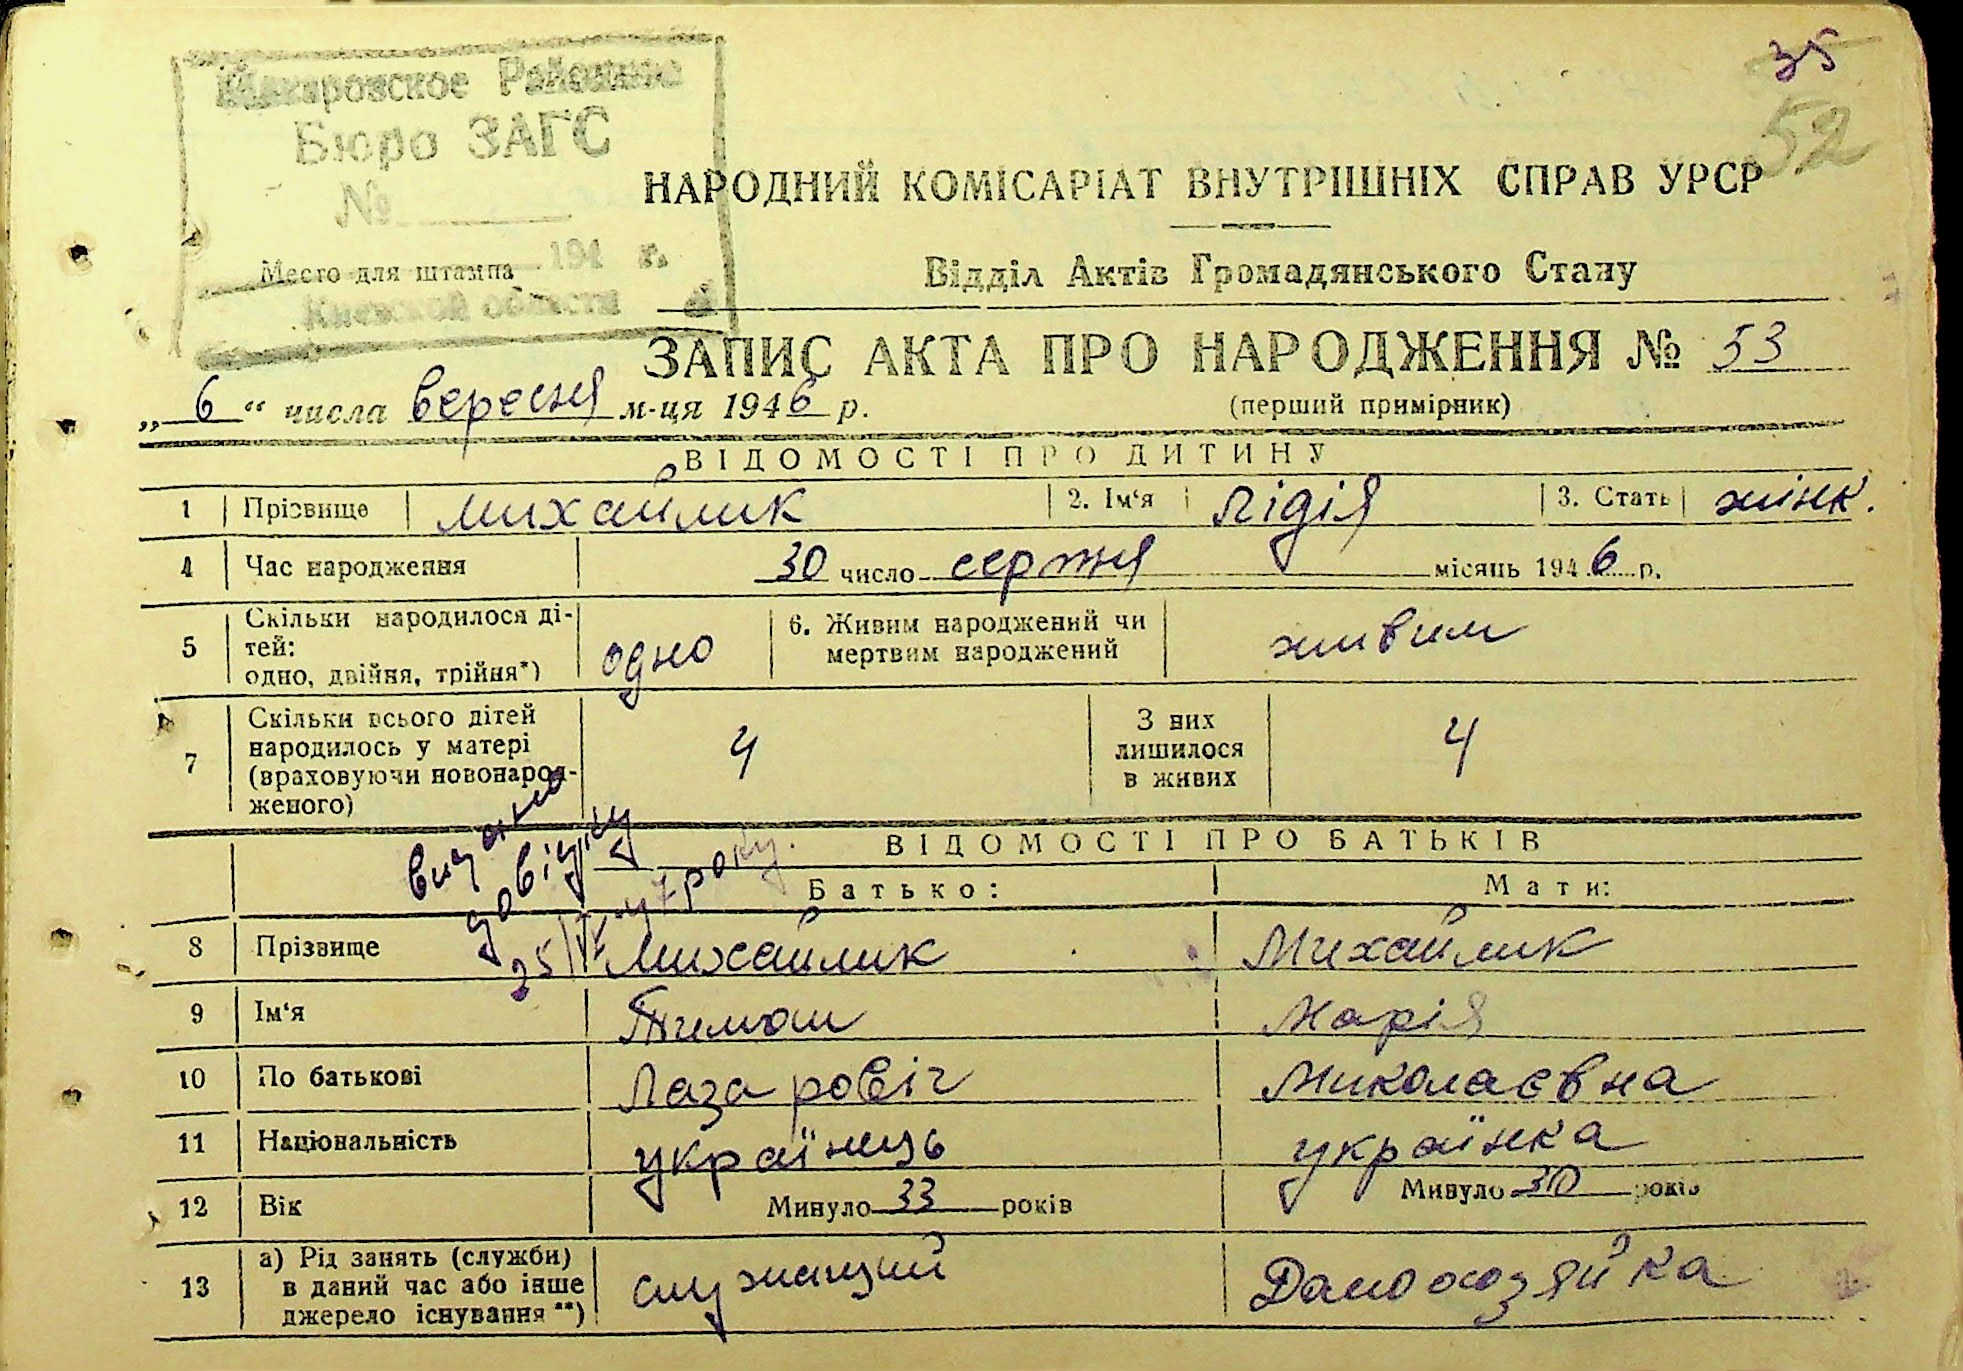 35
52
Макаровское Районное
Бюро ЗАГС
№
194 г.
Место для штампа
Киевской области
НАРОДНИЙ КОМІСАРІАТ ВНУТРІШНІХ СПРАВ УРСР
Відділ Актів Громадянського Стану
ЗАПИС АКТА ПРО НАРОДЖЕННЯ № 53
„6“ числа вересня м-ця 1946 р.
(перший примірник)
ВІДОМОСТІ ПРО ДИТИНУ
1 Прізвище Михайлик 2. Ім'я Лідія 3. Стать жінк.
4 Час народження 30 число серпня місяць 1946 р.
5 Скільки народилося ді-
тей:
одно, двійня, трійня*) одно 6. Живим народжений чи
мертвим народжений живим
7 Скільки всього дітей
народилось у матері
(враховуючи новонарод-
женого) 4 З них
лишилося
в живих 4
видано
довідку
25/IV 47 року.
ВІДОМОСТІ ПРО БАТЬКІВ
Батько: Мати:
8 Прізвище Михайлик Михайлик
9 Ім'я Тимош Марія
10 По батькові Лазаровіч Миколаєвна
11 Національність українець українка
12 Вік Минуло 33 років Минуло 30 років
13 а) Рід занять (служби)
в даний час або інше
джерело існування **) служащий Дамохозяйка